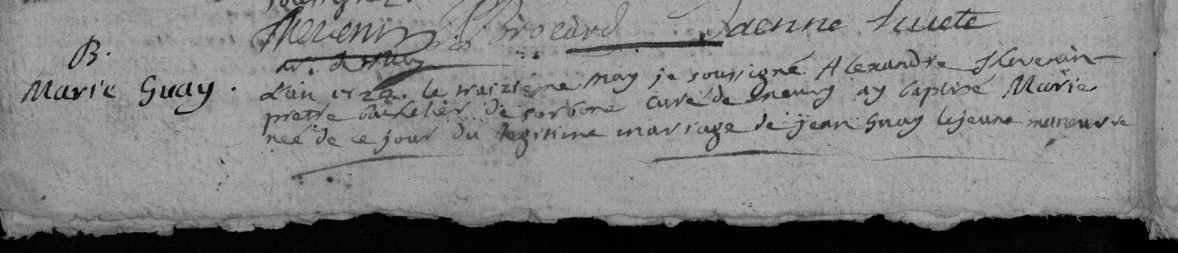 Thevenin Brocard Jaenne huete
B.
Marie Guay.
L'an 1722. le traizième may je soussigné Alexandre Thevenin
pretre bachelier de sorbone curé de ay baptisé Marie
née de ce jour du legitime mariage de jean Guay lejeune maneuvre